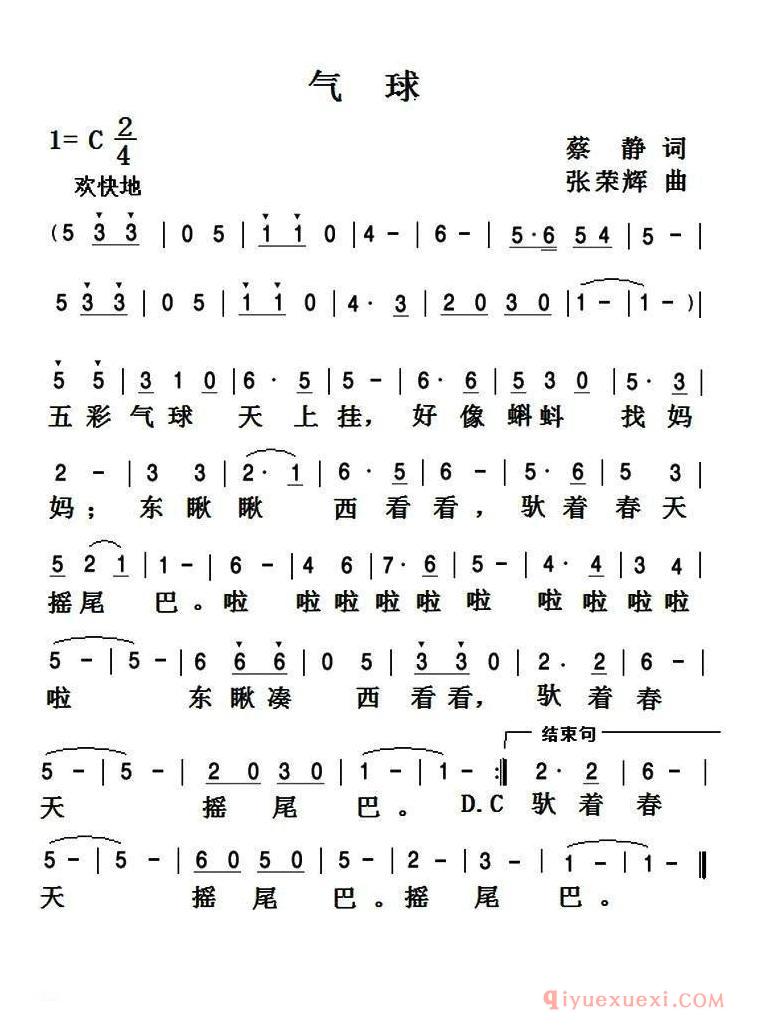 气 球
1= C 2/4
蔡 静 词
欢快地
张荣辉 曲
( 5 3 3 | 0 5 | 1 1 0 | 4 - | 6 - | 5· 6 5 4 | 5 - |
5 3 3 | 0 5 | 1 1 0 | 4· 3 | 2 0 3 0 | 1 - | 1 - ) |
5 5 | 3 1 0 | 6· 5 | 5 - | 6· 6 | 5 3 0 | 5· 3 |
五彩气球 天上挂，好像蝌蚪 找妈
2 - | 3 3 | 2· 1 | 6· 5 | 6 - | 5· 6 | 5 6 |
妈；东瞅瞅 西看看，驮着春天
5 2 1 | 1 - | 6 - | 4 6 | 7· 6 | 5 - | 4· 4 | 3 4 |
摇尾 巴。啦 啦啦啦啦 啦 啦啦啦啦
5 - | 5 - | 6 6 6 | 0 5 | 3 3 0 | 2· 2 | 6 - |
啦 东瞅凑 西看看，驮着春
结束句
5 - | 5 - | 2 0 3 0 | 1 - | 1 - :| 2· 2 | 6 - |
天 摇尾巴。D.C 驮着春
5 - | 5 - | 6 0 5 0 | 5 - | 2 - | 3 - | 1 - | 1 - ||
天 摇尾 巴。摇尾 巴。
qiyuexuexi.com